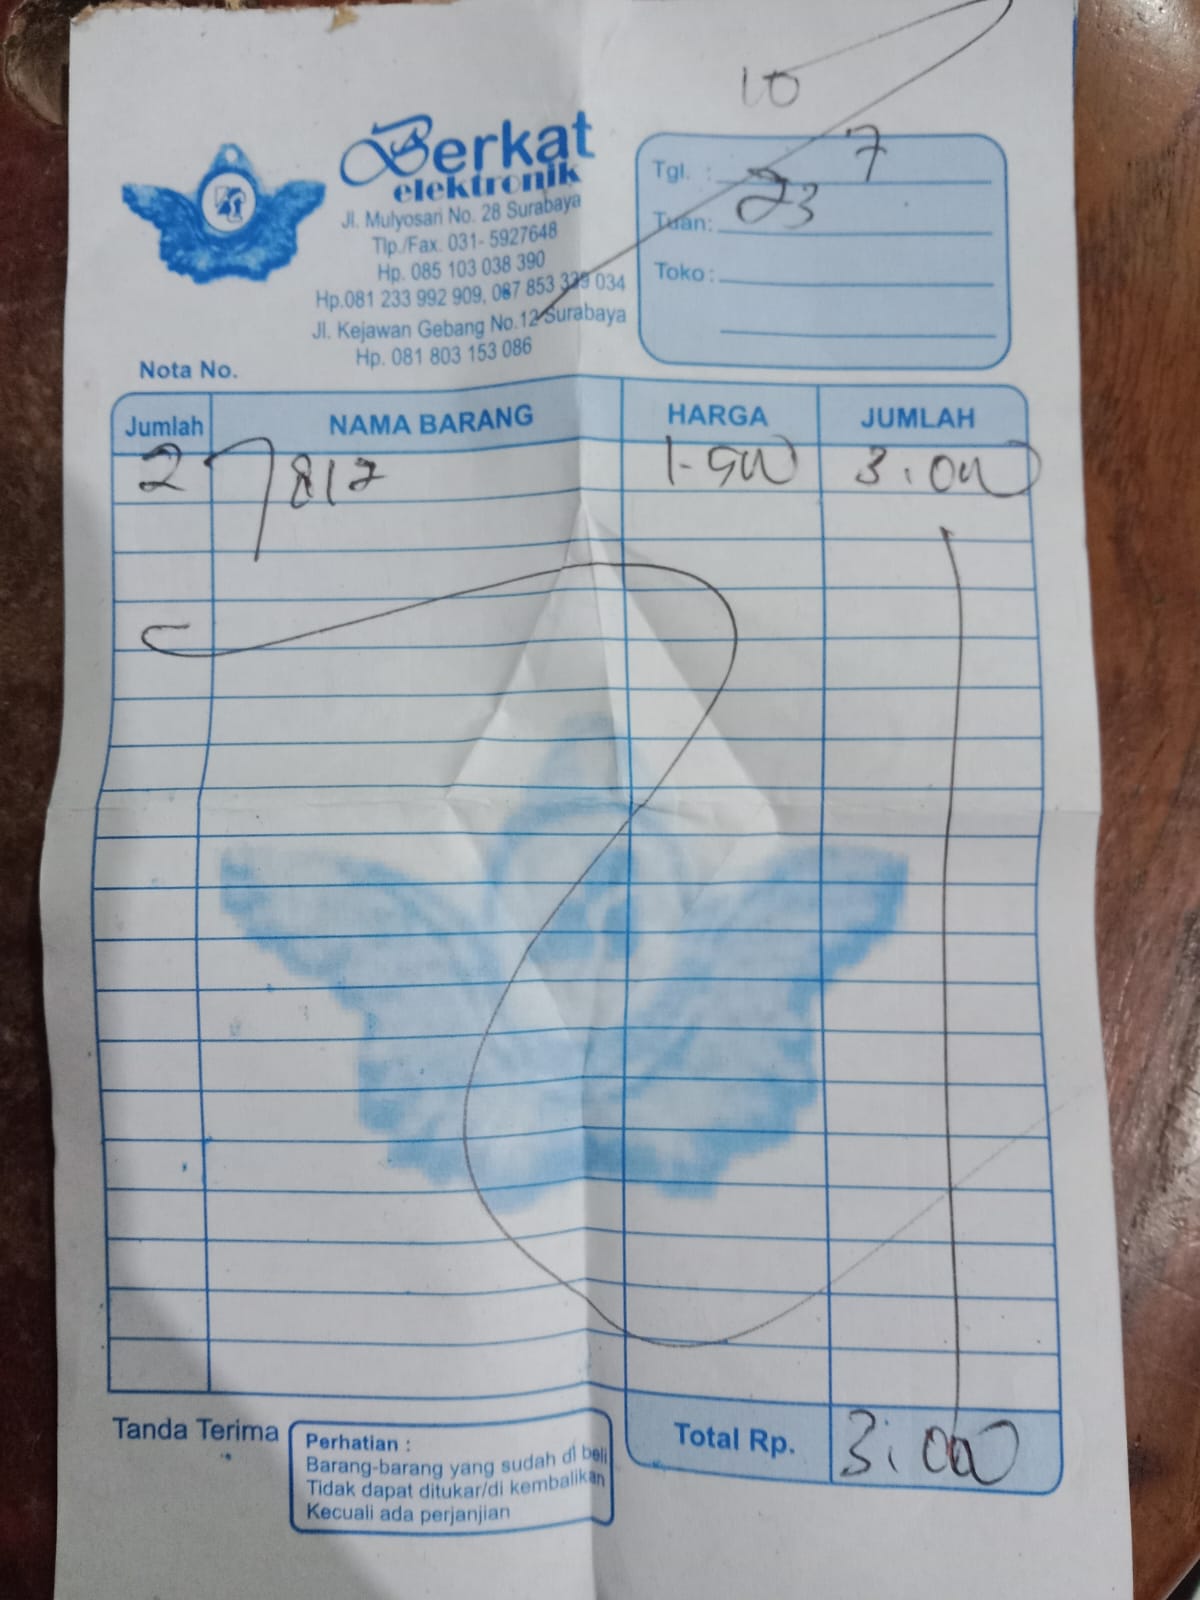 10
Berkat
elektronik
Jl. Mulyosari No. 28 Surabaya
Tlp./Fax. 031- 5927648
Hp. 085 103 038 390
Hp.081 233 992 909, 087 853 339 034
Jl. Kejawan Gebang No.12 Surabaya
Hp. 081 803 153 086
Tgl. : 7
23
Tuan:
Toko :
Nota No.
Jumlah NAMA BARANG HARGA JUMLAH
2 7812 1.500 3.000
Total Rp. 3.000
Tanda Terima
Perhatian :
Barang-barang yang sudah di beli
Tidak dapat ditukar/di kembalikan
Kecuali ada perjanjian